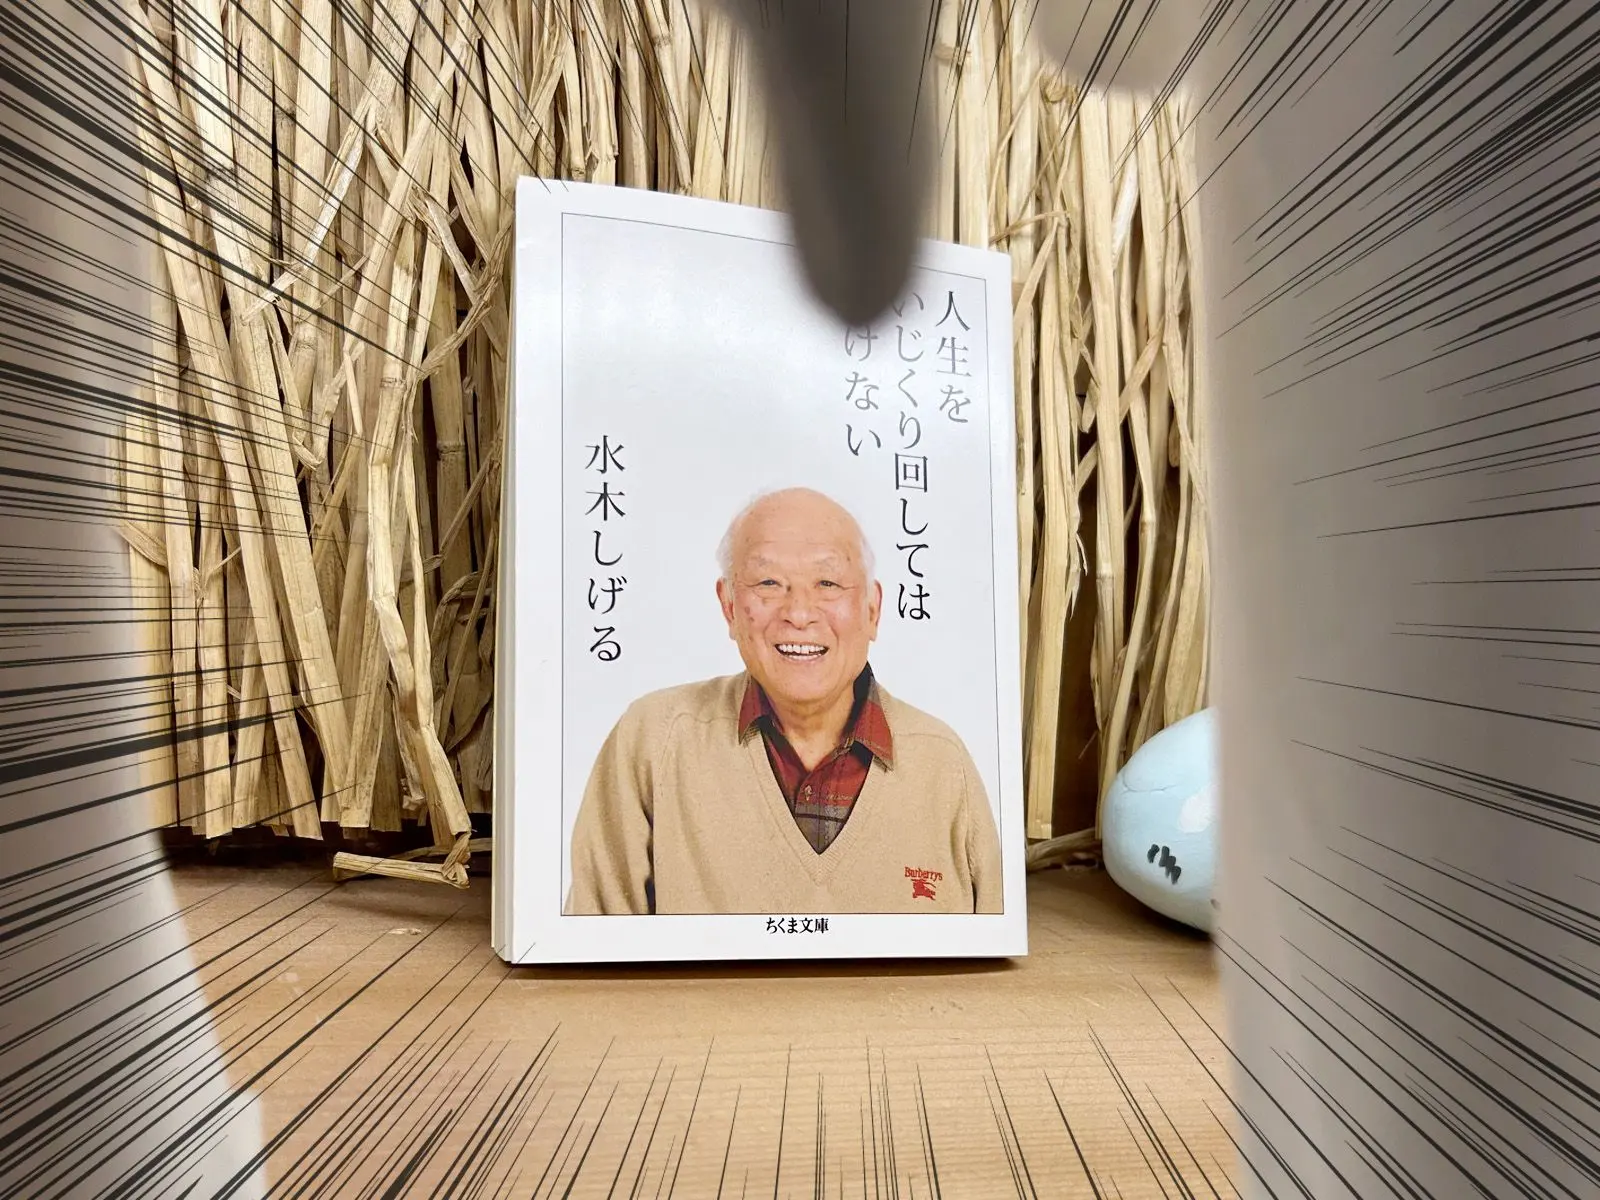 人生を
いじくり回しては
けない
水木しげる
Burberrys
ちくま文庫